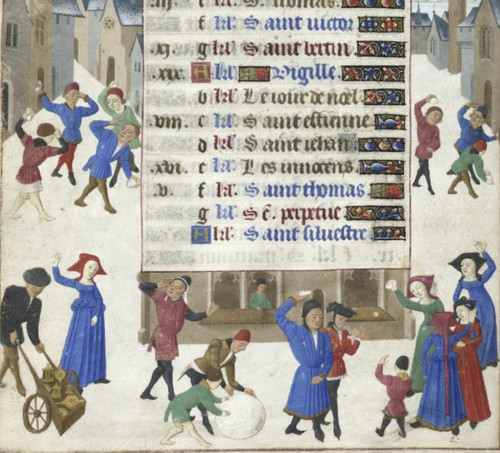 c S. thomas.
f kl' Saint victor
.xj. g kl' Saint bertin
.xix. A kl' Vigille.
b kl' Le iour de noel.
.viij. c kl' Saint estienne
d kl' Saint iehan
.xvi. e kl' Les innocens.
.v. f kl' Saint thomas
g kl' S[e]. perpetue
A kl' Saint siluestre